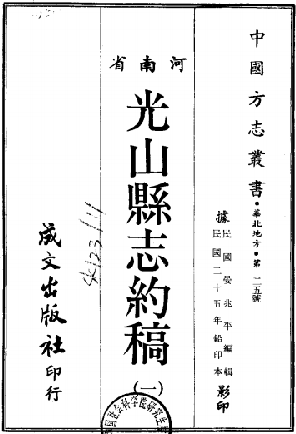 中國方志叢書・華北地方・第一二五號
據民國晏兆平編輯
民國二十五年鉛印本影印
河南省
光山縣志約稿
(一)
成文出版社印行